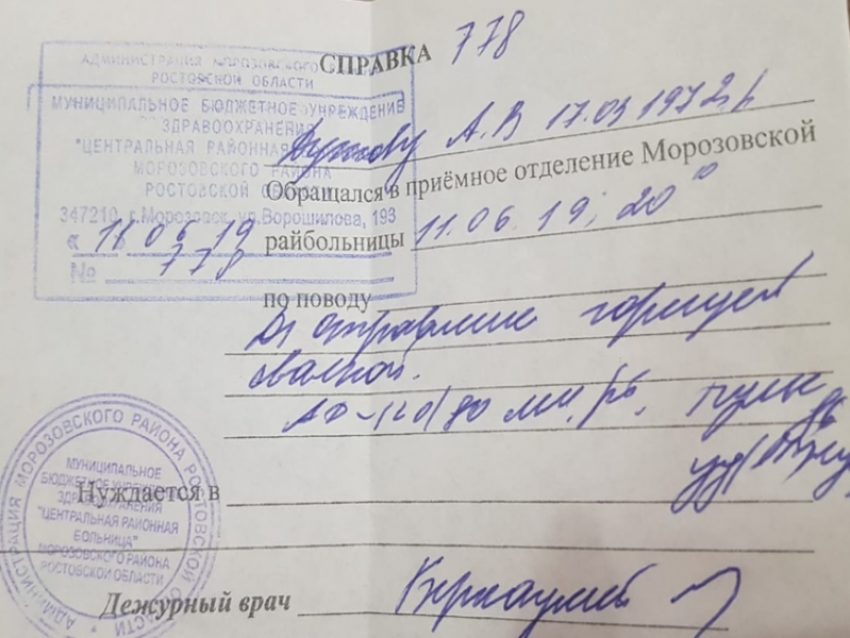 СПРАВКА 778
АДМИНИСТРАЦИЯ МОРОЗОВСКОГО
РОСТОВСКОЙ ОБЛАСТИ
МУНИЦИПАЛЬНОЕ БЮДЖЕТНОЕ УЧРЕЖДЕНИЕ
ЗДРАВООХРАНЕНИЯ
"ЦЕНТРАЛЬНАЯ РАЙОННАЯ
МОРОЗОВСКОГО РАЙОНА
РОСТОВСКОЙ ОБЛАСТИ
347210, г.Морозовск, ул.Ворошилова, 193
« 11 06 19
№ 778
А.В 17.03 1972г.
Обращался в приёмное отделение Морозовской
райбольницы 11.06.19; 20
по поводу
Ds отравление
120/80 мм.
Нуждается в
Дежурный врач
АДМИНИСТРАЦИЯ МОРОЗОВСКОГО РАЙОНА РОСТОВСКОЙ ОБЛАСТИ
МУНИЦИПАЛЬНОЕ
БЮДЖЕТНОЕ УЧРЕЖДЕНИЕ
ЗДРАВООХРАНЕНИЯ
"ЦЕНТРАЛЬНАЯ РАЙОННАЯ
БОЛЬНИЦА"
МОРОЗОВСКОГО РАЙОНА
РОСТОВСКОЙ ОБЛАСТИ